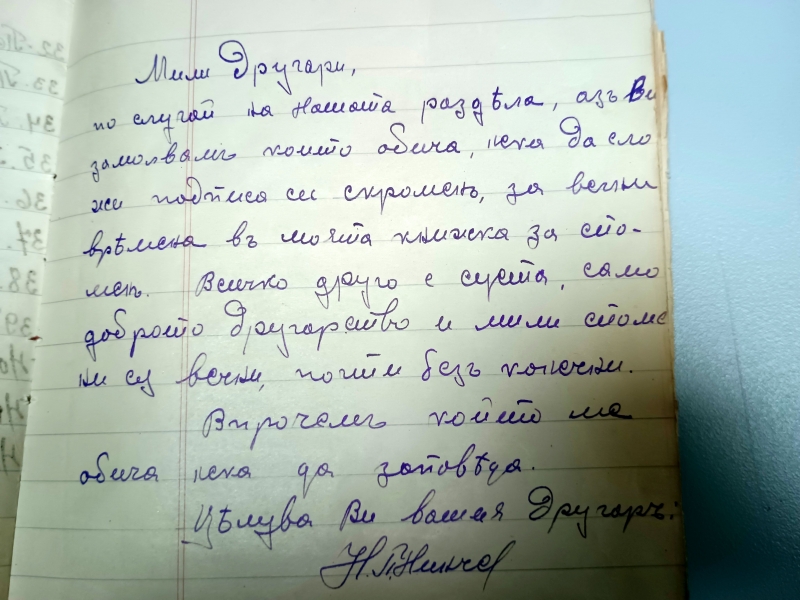 Мили Другари,
по случай на нашата раздѣла, азъ Ви
замолвамъ които обича, нека да сло
жи подписа си скроменъ, за вечни
врѣмена въ моята книжка за спо-
менъ. Всичко друго е суета, само
доброто Другарство и мили споме
ни су вечни, почти безъ конечни.
Впрочемъ който ма
обича нека да заповѣда.
Цѣлува Ви вашия Другаръ:
32.
33.
34.
35.
36.
37.
38.
39